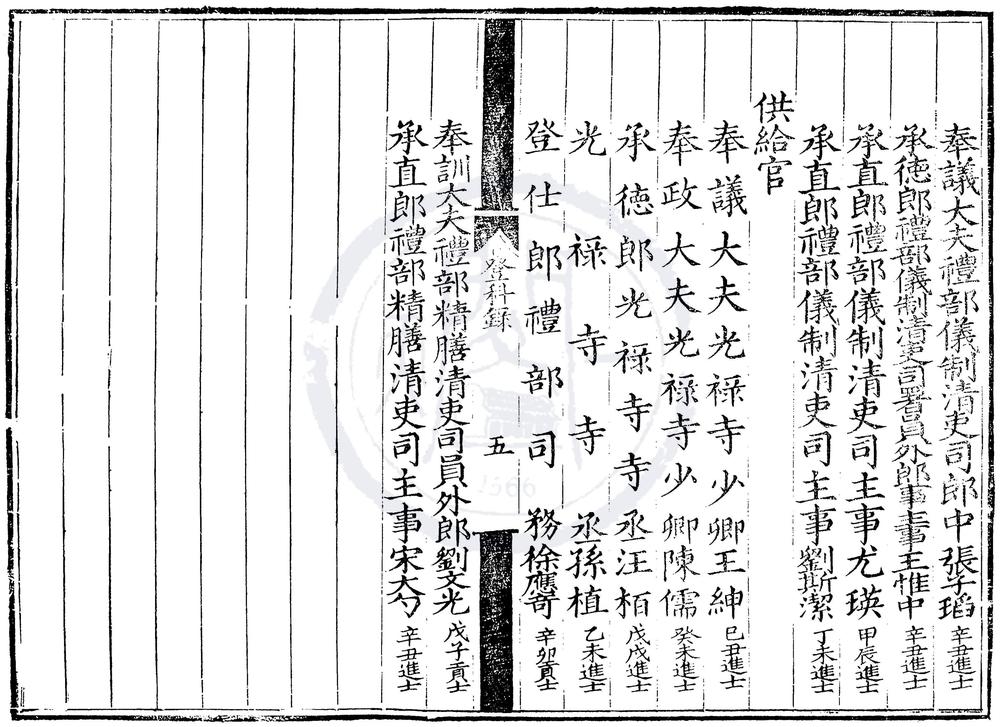 奉議大夫禮部儀制清吏司郎中張子瑫辛丑進士
承德郎禮部儀制清吏司署員外郎事主事王惟中辛丑進士
承直郎禮部儀制清吏司主事尤瑛甲辰進士
承直郎禮部儀制清吏司主事劉斯潔丁未進士
供給官
奉議大夫光祿寺少卿王紳己丑進士
奉政大夫光祿寺少卿陳儒癸未進士
承德郎光祿寺寺丞汪栢戊戌進士
光祿寺寺丞孫植乙未進士
登仕郎禮部司務徐應奇辛卯貢士
登科錄
五
奉訓大夫禮部精膳清吏司員外郎劉文光戊子貢士
承直郎禮部精膳清吏司主事宋大勺辛丑進士
1366